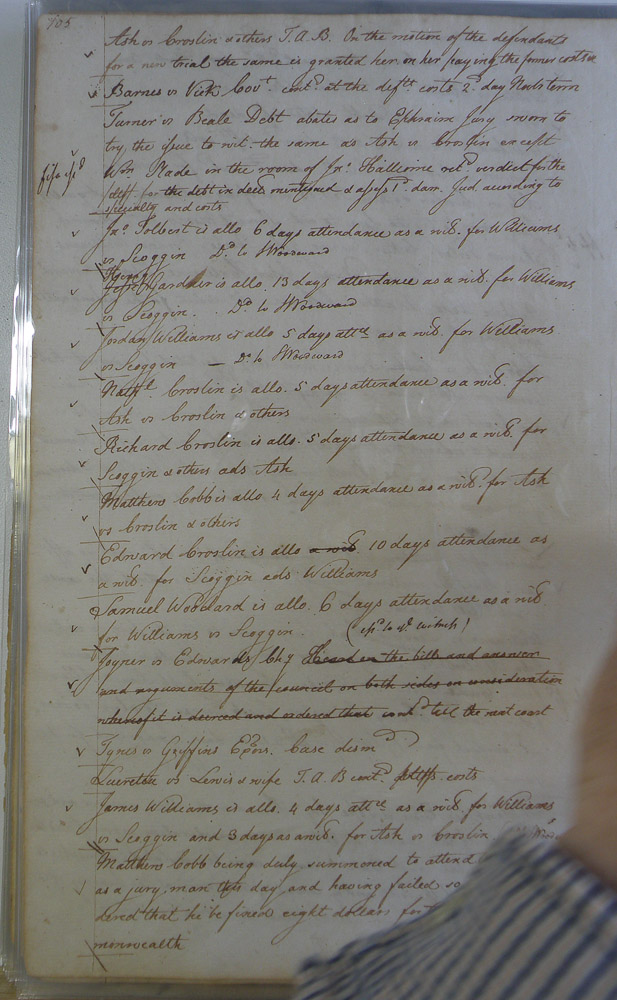 705
Ash vs Croslin & others T. A. B. On the motion of the defendants
for a new trial the same is granted her on her paying the former costs
Barnes vs Vick Cov.t cont.d at the def.ts costs 2.d day Nov.r term
Turner vs Beale Debt abates as to Ephraim Jury sworn to
try the issue to wit. the same as Ash vs Croslin except
Wm. Wade in the room of Jn.o ret.d verdict for the
pltff. for the debt in decl. mentioned & assess 1.d dam. Jud. according to
specialty and costs
Jn.o Tolbert is allo 6 days attendance as a wit. for Williams
vs Scoggin D.d to J Woodward
Henry
Gardner is allo. 13 days attendance as a wit. for Williams
vs Scoggin. D.d to J Woodward
Jordan Williams is allo 5 days att.ce as a wit. for Williams
vs Scoggin — D.d to J Woodward
Nath.l Croslin is allo. 5 days attendance as a wit. for
Ash vs Croslin & others
Richard Croslin is allo. 5 days attendance as a wit. for
Scoggin & others ads Ash
Matthew Cobb is allo 4 days attendance as a wit. for Ash
vs Croslin & others
Edward Croslin is allo a wit 10 days attendance as
a wit. for Scoggin ads Williams
Samuel Woodard is allo. 6 days attendance as a wit
for Williams vs Scoggin.
Joyner vs Edwards Ch.y Heard on the bill and answer
and arguments of the council on both sides on consideration
whereof it is decreed and ordered that cont.d till the next court
Tynes vs Griffins Exors. Case dism.d
vs Lewis & wife T. A. B cont.d pltffs. costs
James Williams is allo. 4 days att.ce as a wit for Williams
vs Scoggin and 3 days as a wit. for Ash vs Croslin
Matthew Cobb being duly summoned to attend
as a jury man this day and having failed so
dered that he be fined eight dollars for
monwealth